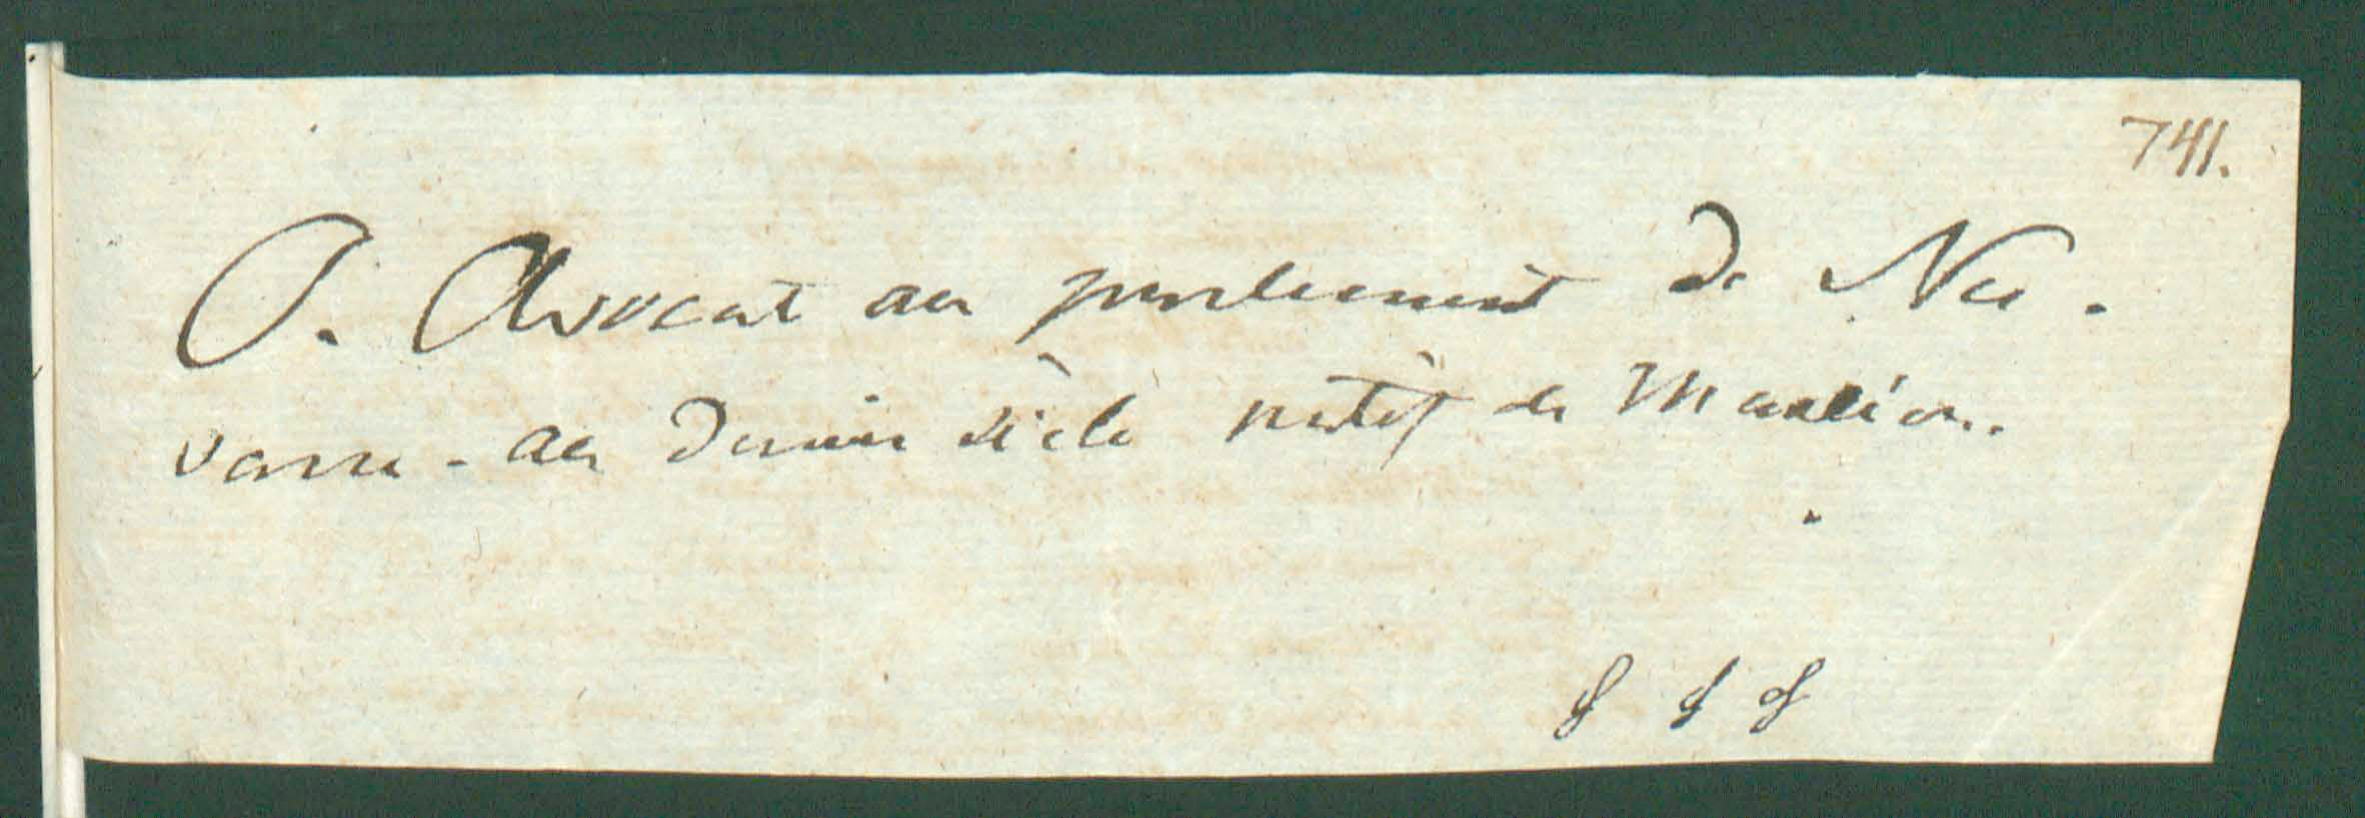 741.
O. Avocat au parlement de Na-
varre - au dernier siècle natif de Mauléon.